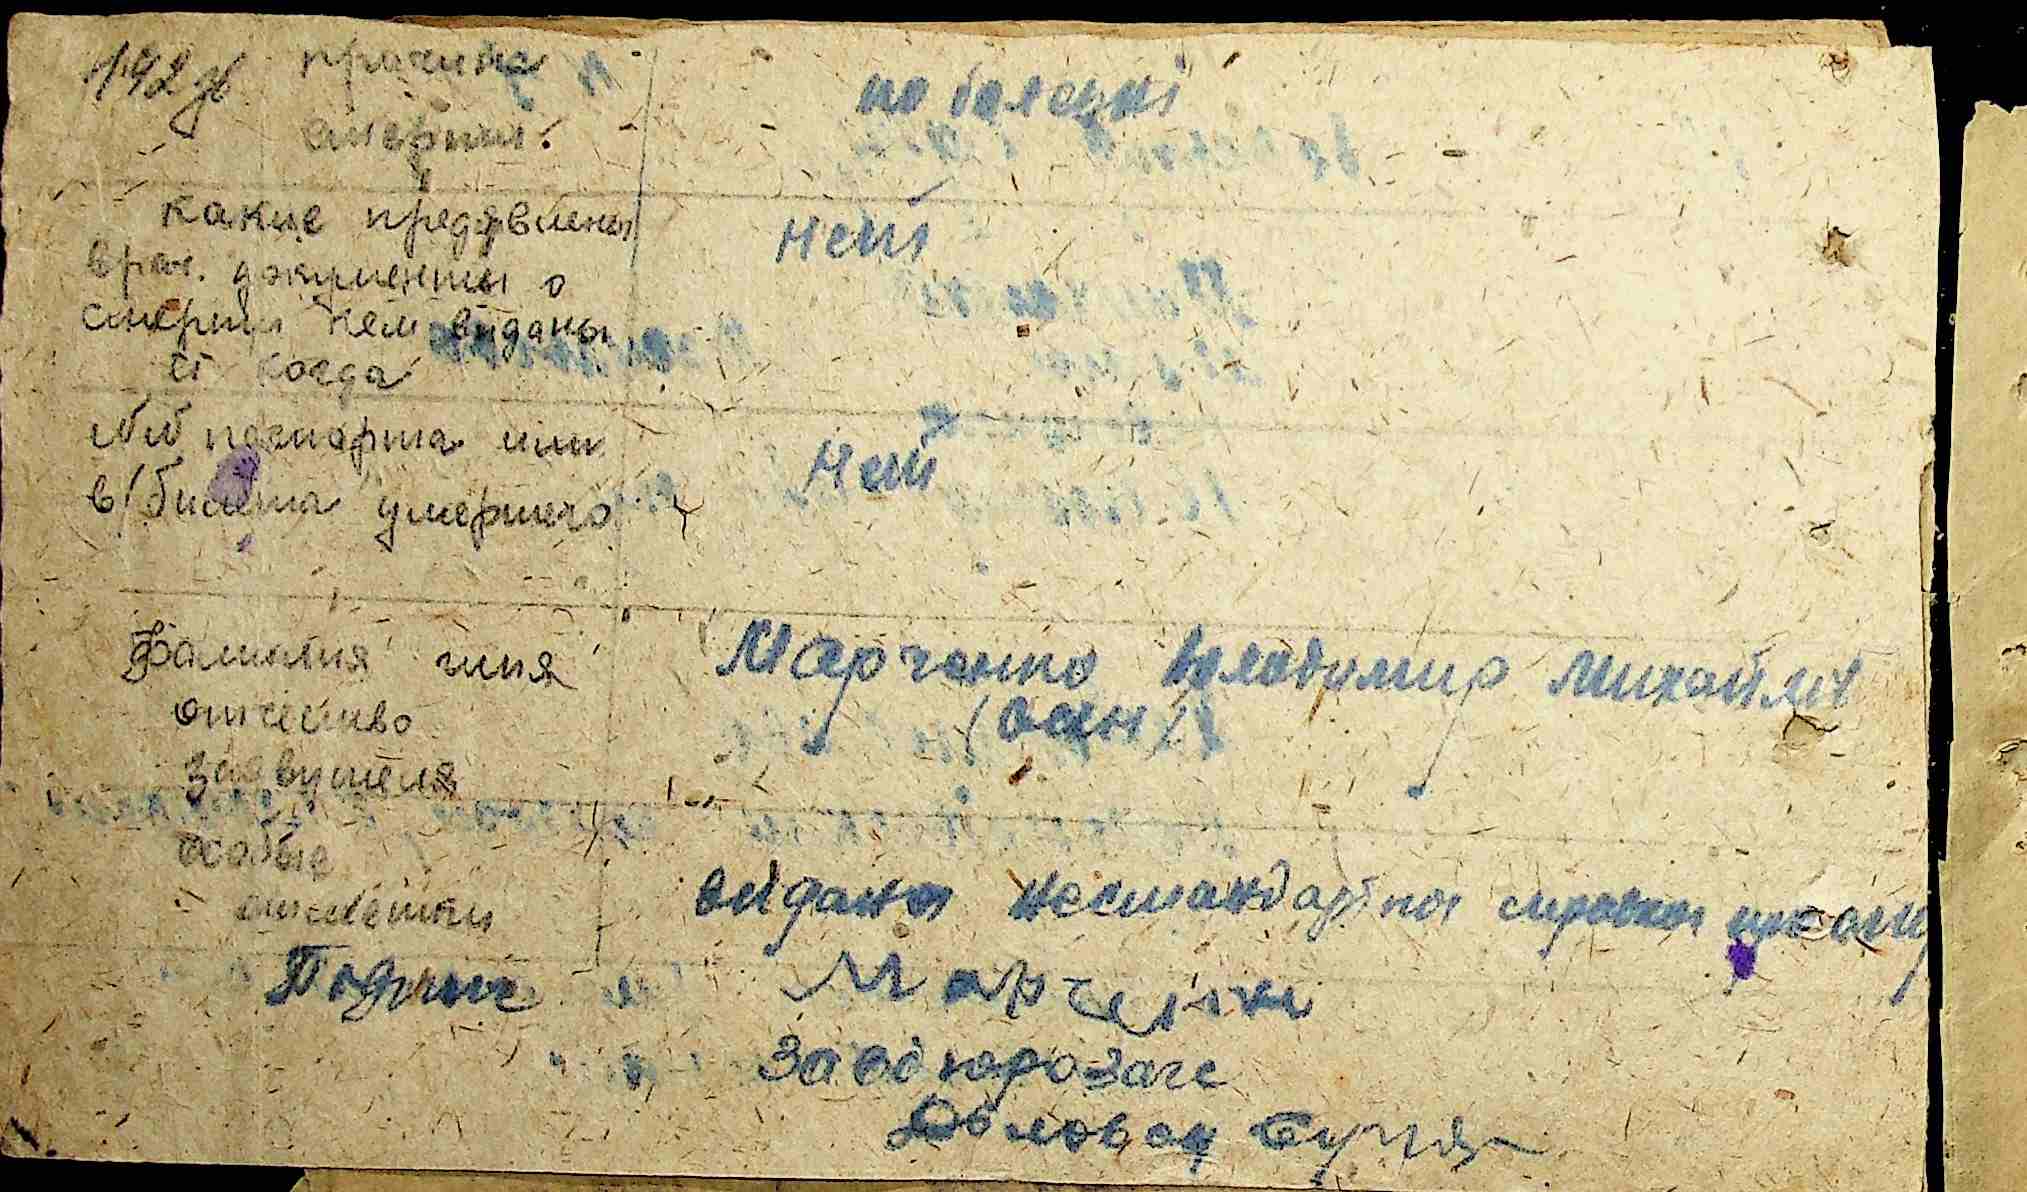 причина
смерти.
по болезни
какие предявлены
врач. документы о
смерти кем выданы
и когда
нет
№№ паспорта или
в/билета умершего
нет
Фамилия имя
отчество
заявителя
Марченко Владимир Михайлич
(сын)
особые
отметки
видана нестандартная справка
Подпись Марченко
Зав